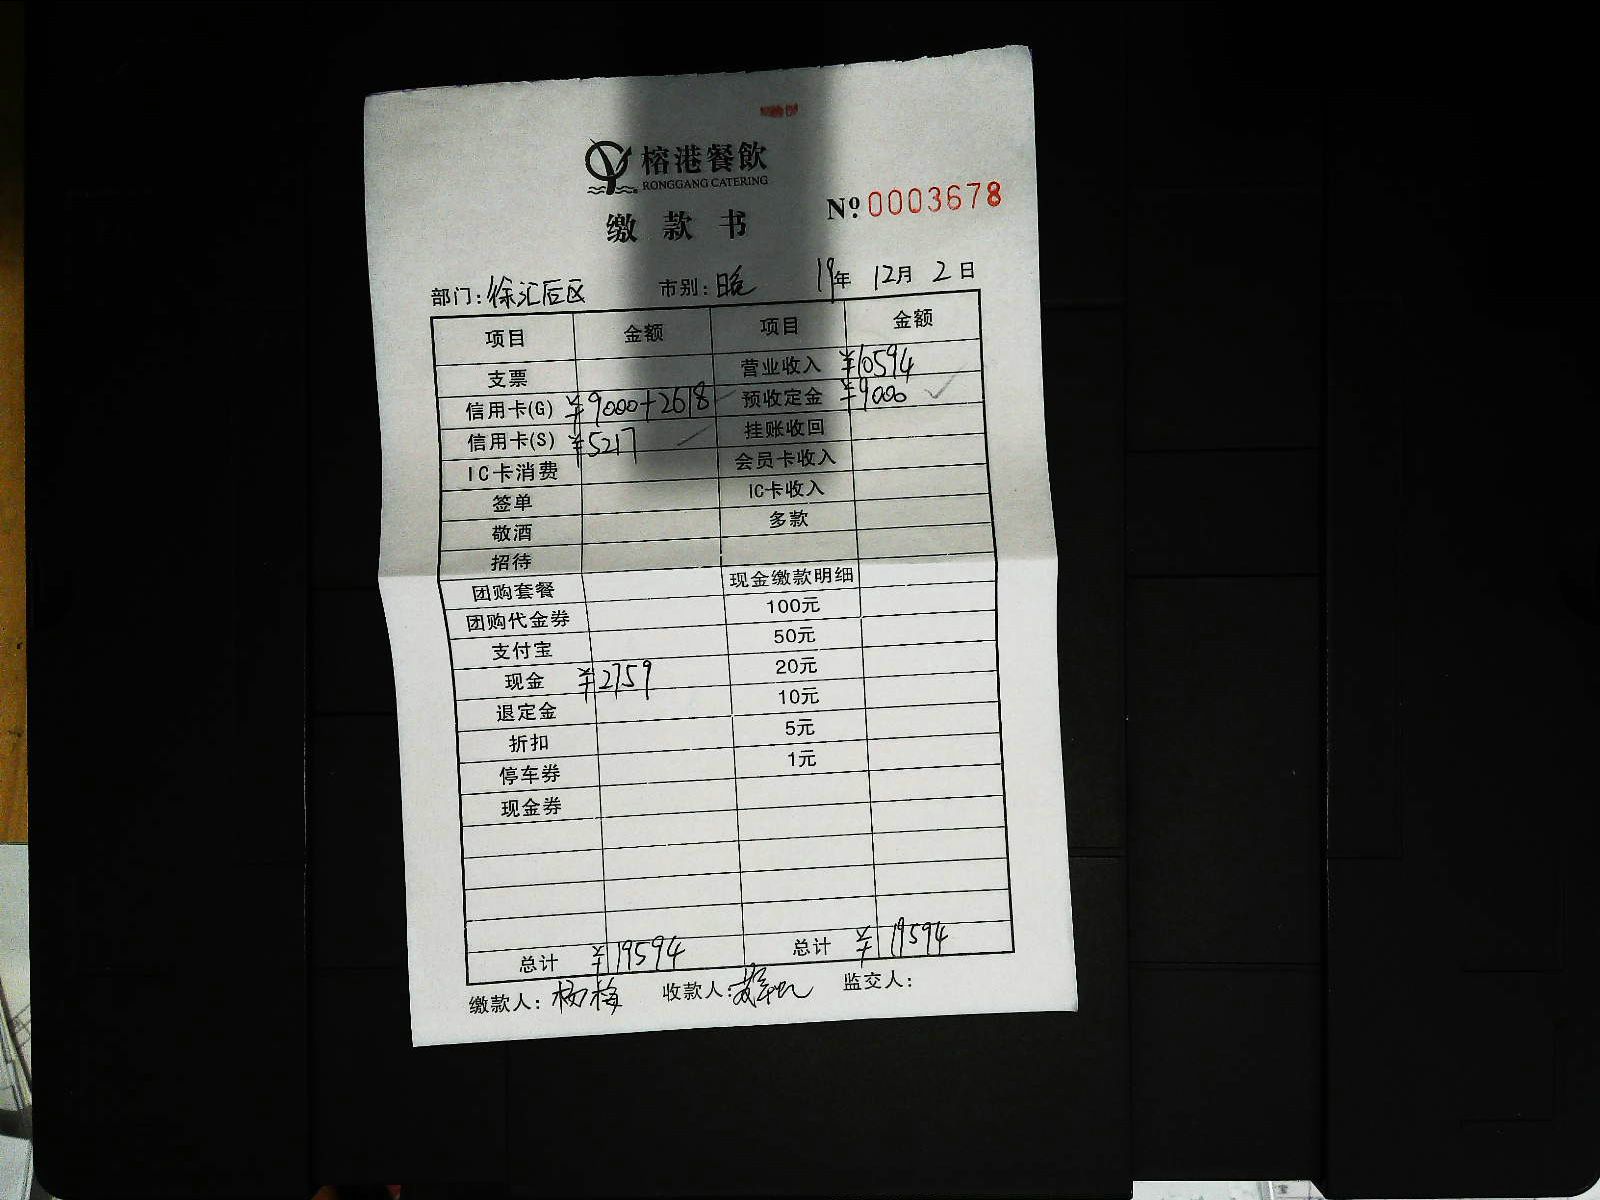 榕港餐飲
RONGGANG CATERING
缴 款 书
Nº 0003678
部门：徐汇后区 市别：晚 19年 12月 2日
项目 金额 项目 金额
支票 营业收入 ¥10594
信用卡(G) ¥9000+2618 预收定金 ¥9000 ✓
信用卡(S) ¥5217 挂账收回
IC卡消费 会员卡收入
签单 IC卡收入
敬酒 多款
招待
团购套餐 现金缴款明细
团购代金券 100元
支付宝 50元
现金 ¥2759 20元
退定金 10元
折扣 5元
停车券 1元
现金券
总计 ¥19594 总计 ¥19594
缴款人：杨梅 收款人： 监交人：